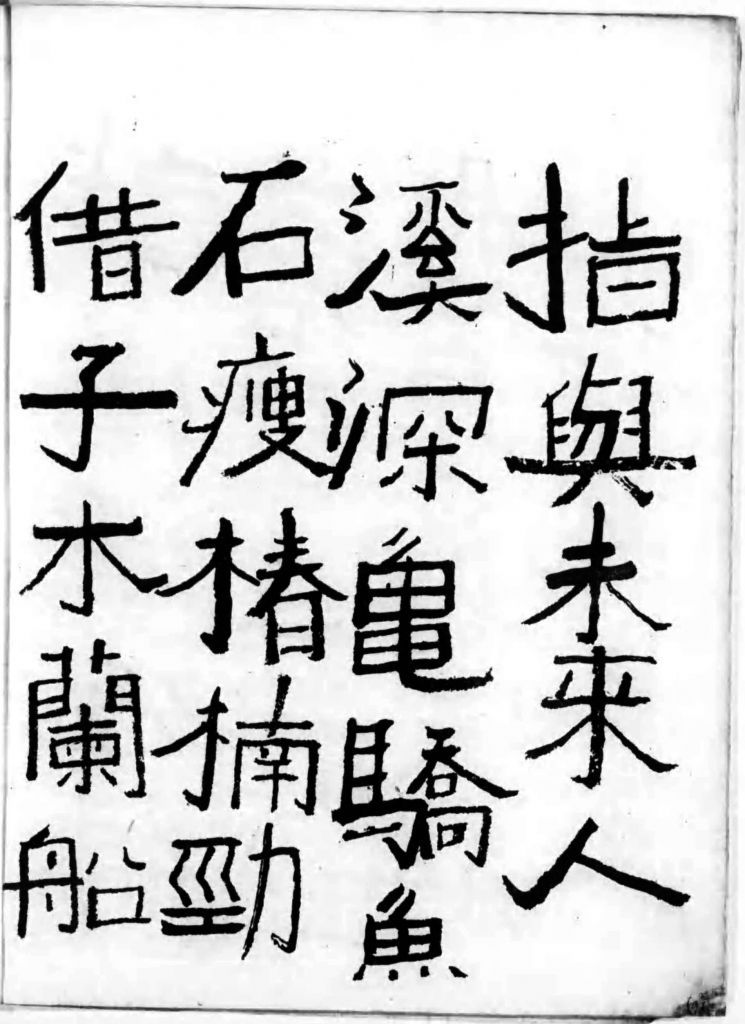 指與未來人
溪深亀驕魚
石瘦椿楠勁
借子木蘭船